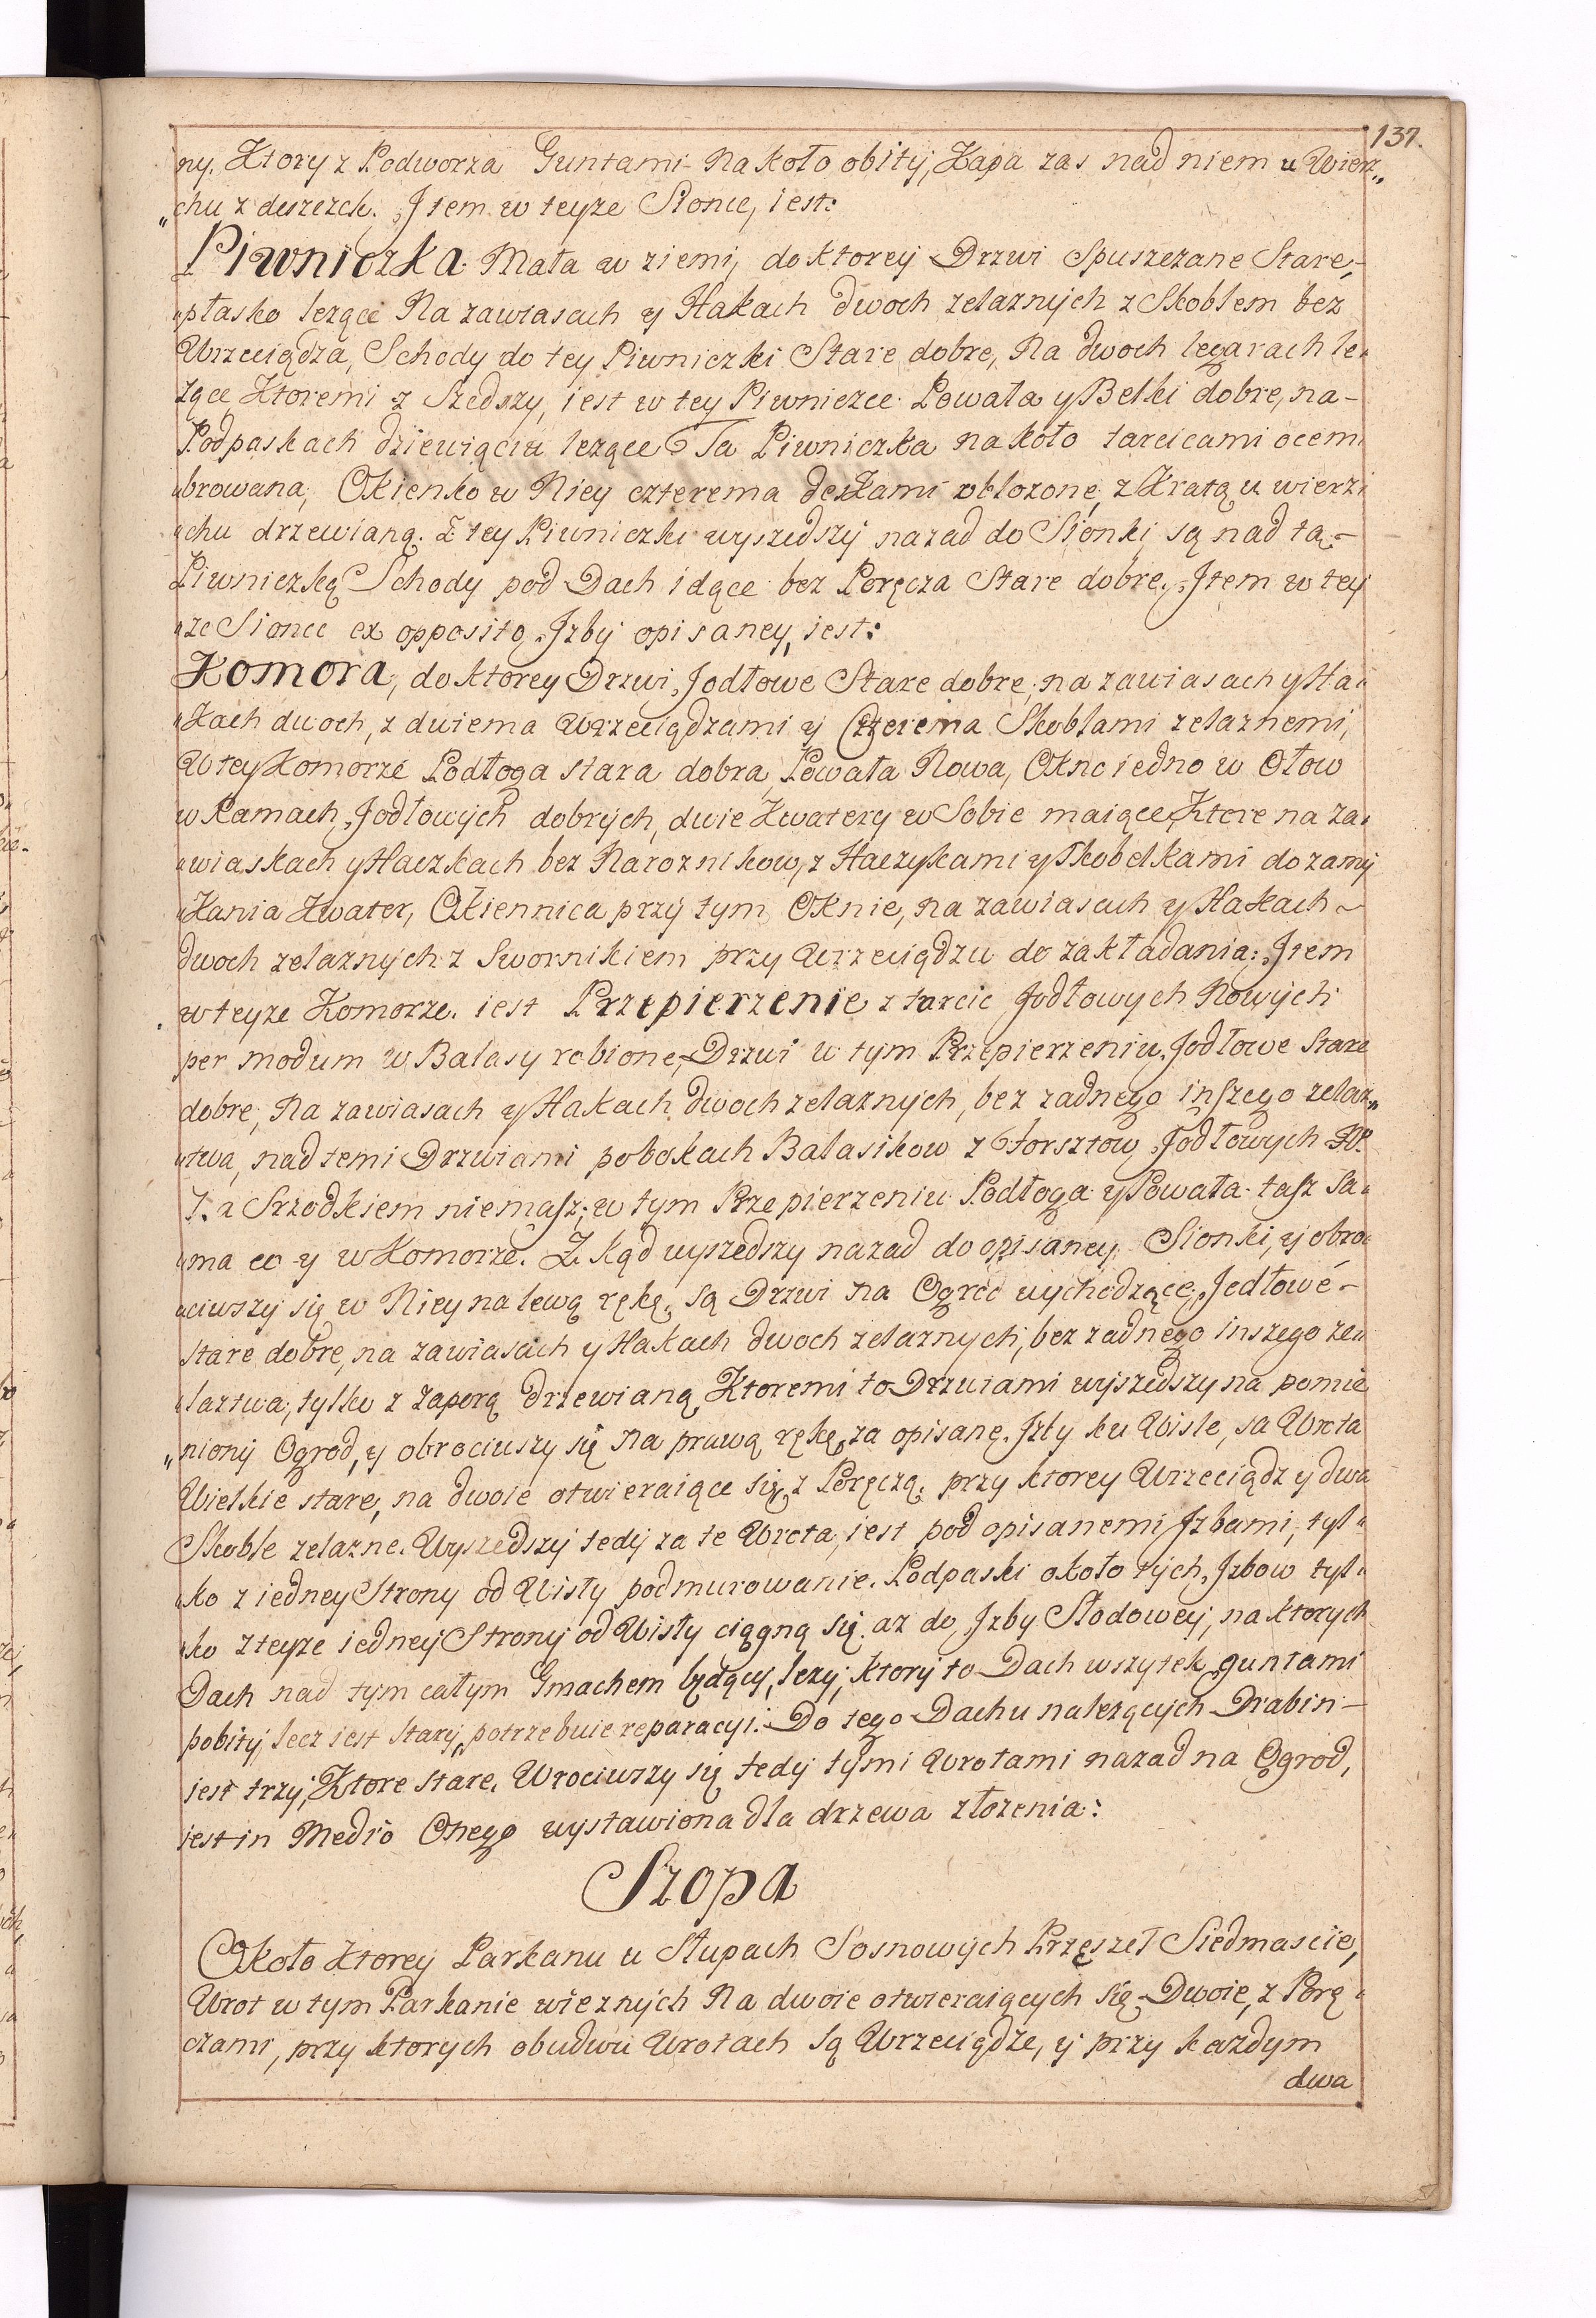 137.
ny. Ktory z Podworza Guntami na koło obity, Kapa zas nad niem u Wierz„
„chu z deszczek. Item w teyze Sionce, iest:
Piwniczka Mała w ziemi, do ktorey Drzwi Spuszczane Stare,
„płasko lezące Na zawiasach y Hakach dwoch zelaznych z Skoblem bez
Wrzeciądza, Schody do tey Piwniczki Stare dobre, Na dwoch legarach le„
zące Ktoremi z Szedszy, iest w tey Piwniczce Powała y Belki dobre, na-
Podpaskach dziewiąciu lezące Ta Piwniczka na koło tarcicami ocem„
„browana, Okienko w Niey czterema deskami obłozone, z Kratą u wierz„
„chu drzewianą. Z tey Piwniczki wyszedszy nazad do Sionki są nad tą-
Piwniczką Schody pod Dach idące bez Poręcza Stare dobre. Item w tey
„ze Sionce ex opposito Izby opisaney, iest:
Komora, do ktorey Drzwi Jodłowe Stare dobre, na zawiasach y Ha„
„kach dwoch, z dwiema Wrzeciądzami y Czterema Skoblami zelaznemi,
W tey Komorze Podłoga stara dobra, Powała Nowa, Okno iedno w Ołow
w Ramach Jodłowych dobrych, dwie Kwatery w Sobie maiące, Ktore na za„
„wiaskach y Haczkach bez Naroznikow, z Haczykami y Skobelkami do zamy
„kania Kwater, Okiennica przy tym Oknie, na zawiasach y Hakach ~
dwoch zelaznych z Swornikiem przy Wrzeciądzu do zakładania: Item
w teyze Komorze. iest Przepierzenie z tarcic Jodłowych Nowych
per modum w Balasy robione, Drzwi w tym Przepierzeniu Jodłowe Stare
dobre, Na zawiasach y Hakach dwoch zelaznych, bez zadnego inszego zelaz„
„twa, nad temi Drzwiami po bokach Balasikow z Forsztow Jodłowych No.
7. a Srzodkiem niemasz; w tym Przepierzeniu Podłoga y Powała tasz Sa„
„ma co y w Komorze. Z kąd wyszedszy nazad do opisaney Sionki, y obro„
„ciwszy się w Niey na lewą rękę, są Drzwi na Ogrod wychodzące, Jedłowe-
stare dobre, na zawiasach y Hakach dwoch zelaznych, bez zadnego inszego ze„
„laztwa, tylko z zaporą drzewianą, Ktoremi to Drzwiami wyszedszy na pomie
„niony Ogrod, y obrociwszy się na prawą rękę, za opisanę Izby ku Wisle, sa Wrota
Wielkie stare, na dwoie otwieraiące się, z Poręczą, przy ktorey Wrzeciądz y dwa
Skoble zelazne. Wyszedszy tedy za te Wrota, iest pod opisanemi Izbami, tyl„
„ko z iedney Strony od Wisły podmurowanie. Podpaski około tych Izbow tyl„
„ko z teyze iedney Strony od Wisły ciągną się az do Izby Słodowey, na ktorych
Dach nad tym całym Gmachem będący, lezy, ktory to Dach wszytek guntami
pobity, lecz iest Stary, potrzebuie reparacyi. Do tego Dachu nalezących Drabin-
iest trzy, Ktore stare. Wrociwszy się tedy tymi Wrotami nazad na Ogrod,
iest in Medio Onego wystawiona dla drzewa złozenia:
Szopa
Około Ktorey Parkanu u Słupach Sosnowych Przęszeł Siedmascie,
Wrot w tym Parkanie wieznych Na dwoie otwieraiących się Dwoie, z Porę„
czami, przy ktorych obudwu Wrotach są Wrzeciądze, y przy kazdym
dwa